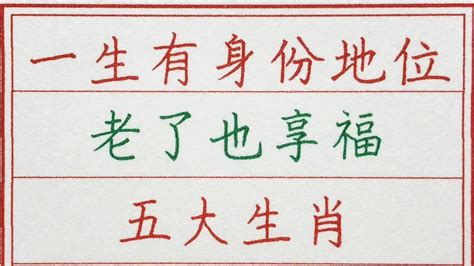 一生有身份地位
老了也享福
五大生肖